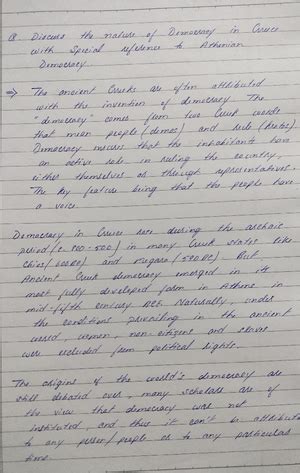 Q. Discuss the nature of Democracy in Greece
with Special reference to Athenian
Democracy.
⇒ The ancient Greeks are often attributed
with the invention of democracy. The
"democracy" comes from two Greek words
that mean people (demos) and rule (kratos).
Democracy means that the inhabitants have
an active role in ruling the country,
either themselves or through representatives.
The key feature being that the people have
a voice.
Democracy in Greece rose during the archaic
period (c. 700-500) in many Greek states like
Chios (600BC) and Megara (590BC). But
Ancient Greek democracy emerged in its
most fully developed form in Athens in
mid-fifth century BCE. Naturally, under
the conditions prevailing in the ancient
world, women, non-citizens and slaves
were excluded from political rights.
The origins of the world's democracy are
still debated over, many scholars are of
the view that democracy was not
instituted, and thus it can't be attributed
to any person/people or to any particular
time.